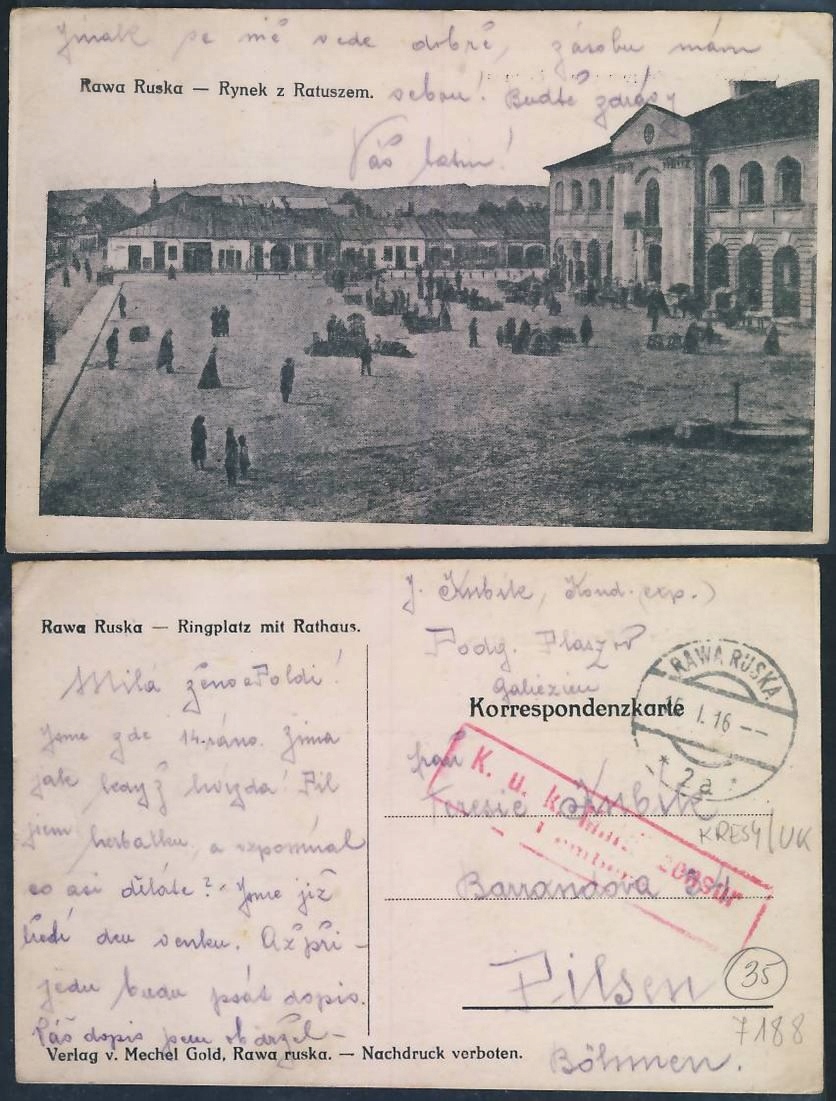 Jinak se mě vede dobře, zásobu mám
Rawa Ruska — Rynek z Ratuszem.
sebou! Buďte zdrávy
Váš
Rawa Ruska — Ringplatz mit Rathaus.
Milá ženo a Poldi!
Jsme zde 14. ráno. Zima
jak když hvízda! Pil
jsem herbatku a vzpomínal
co asi děláte? Jsme již
den venku. Až při-
jedu budu psát dopis.
Váš dopis jsem obdržel-
Verlag v. Mechel Gold, Rawa ruska. — Nachdruck verboten.
J. Kubik, Kond. (exp.)
Podg. Plaszow
Galizien
Korrespondenzkarte
RAWA RUSKA
16. I. 16
* 2a *
K. u. k. Zensur
paní
Kubik
KRESY/UK
Barrandova
Pilsen
35
7188
Böhmen.